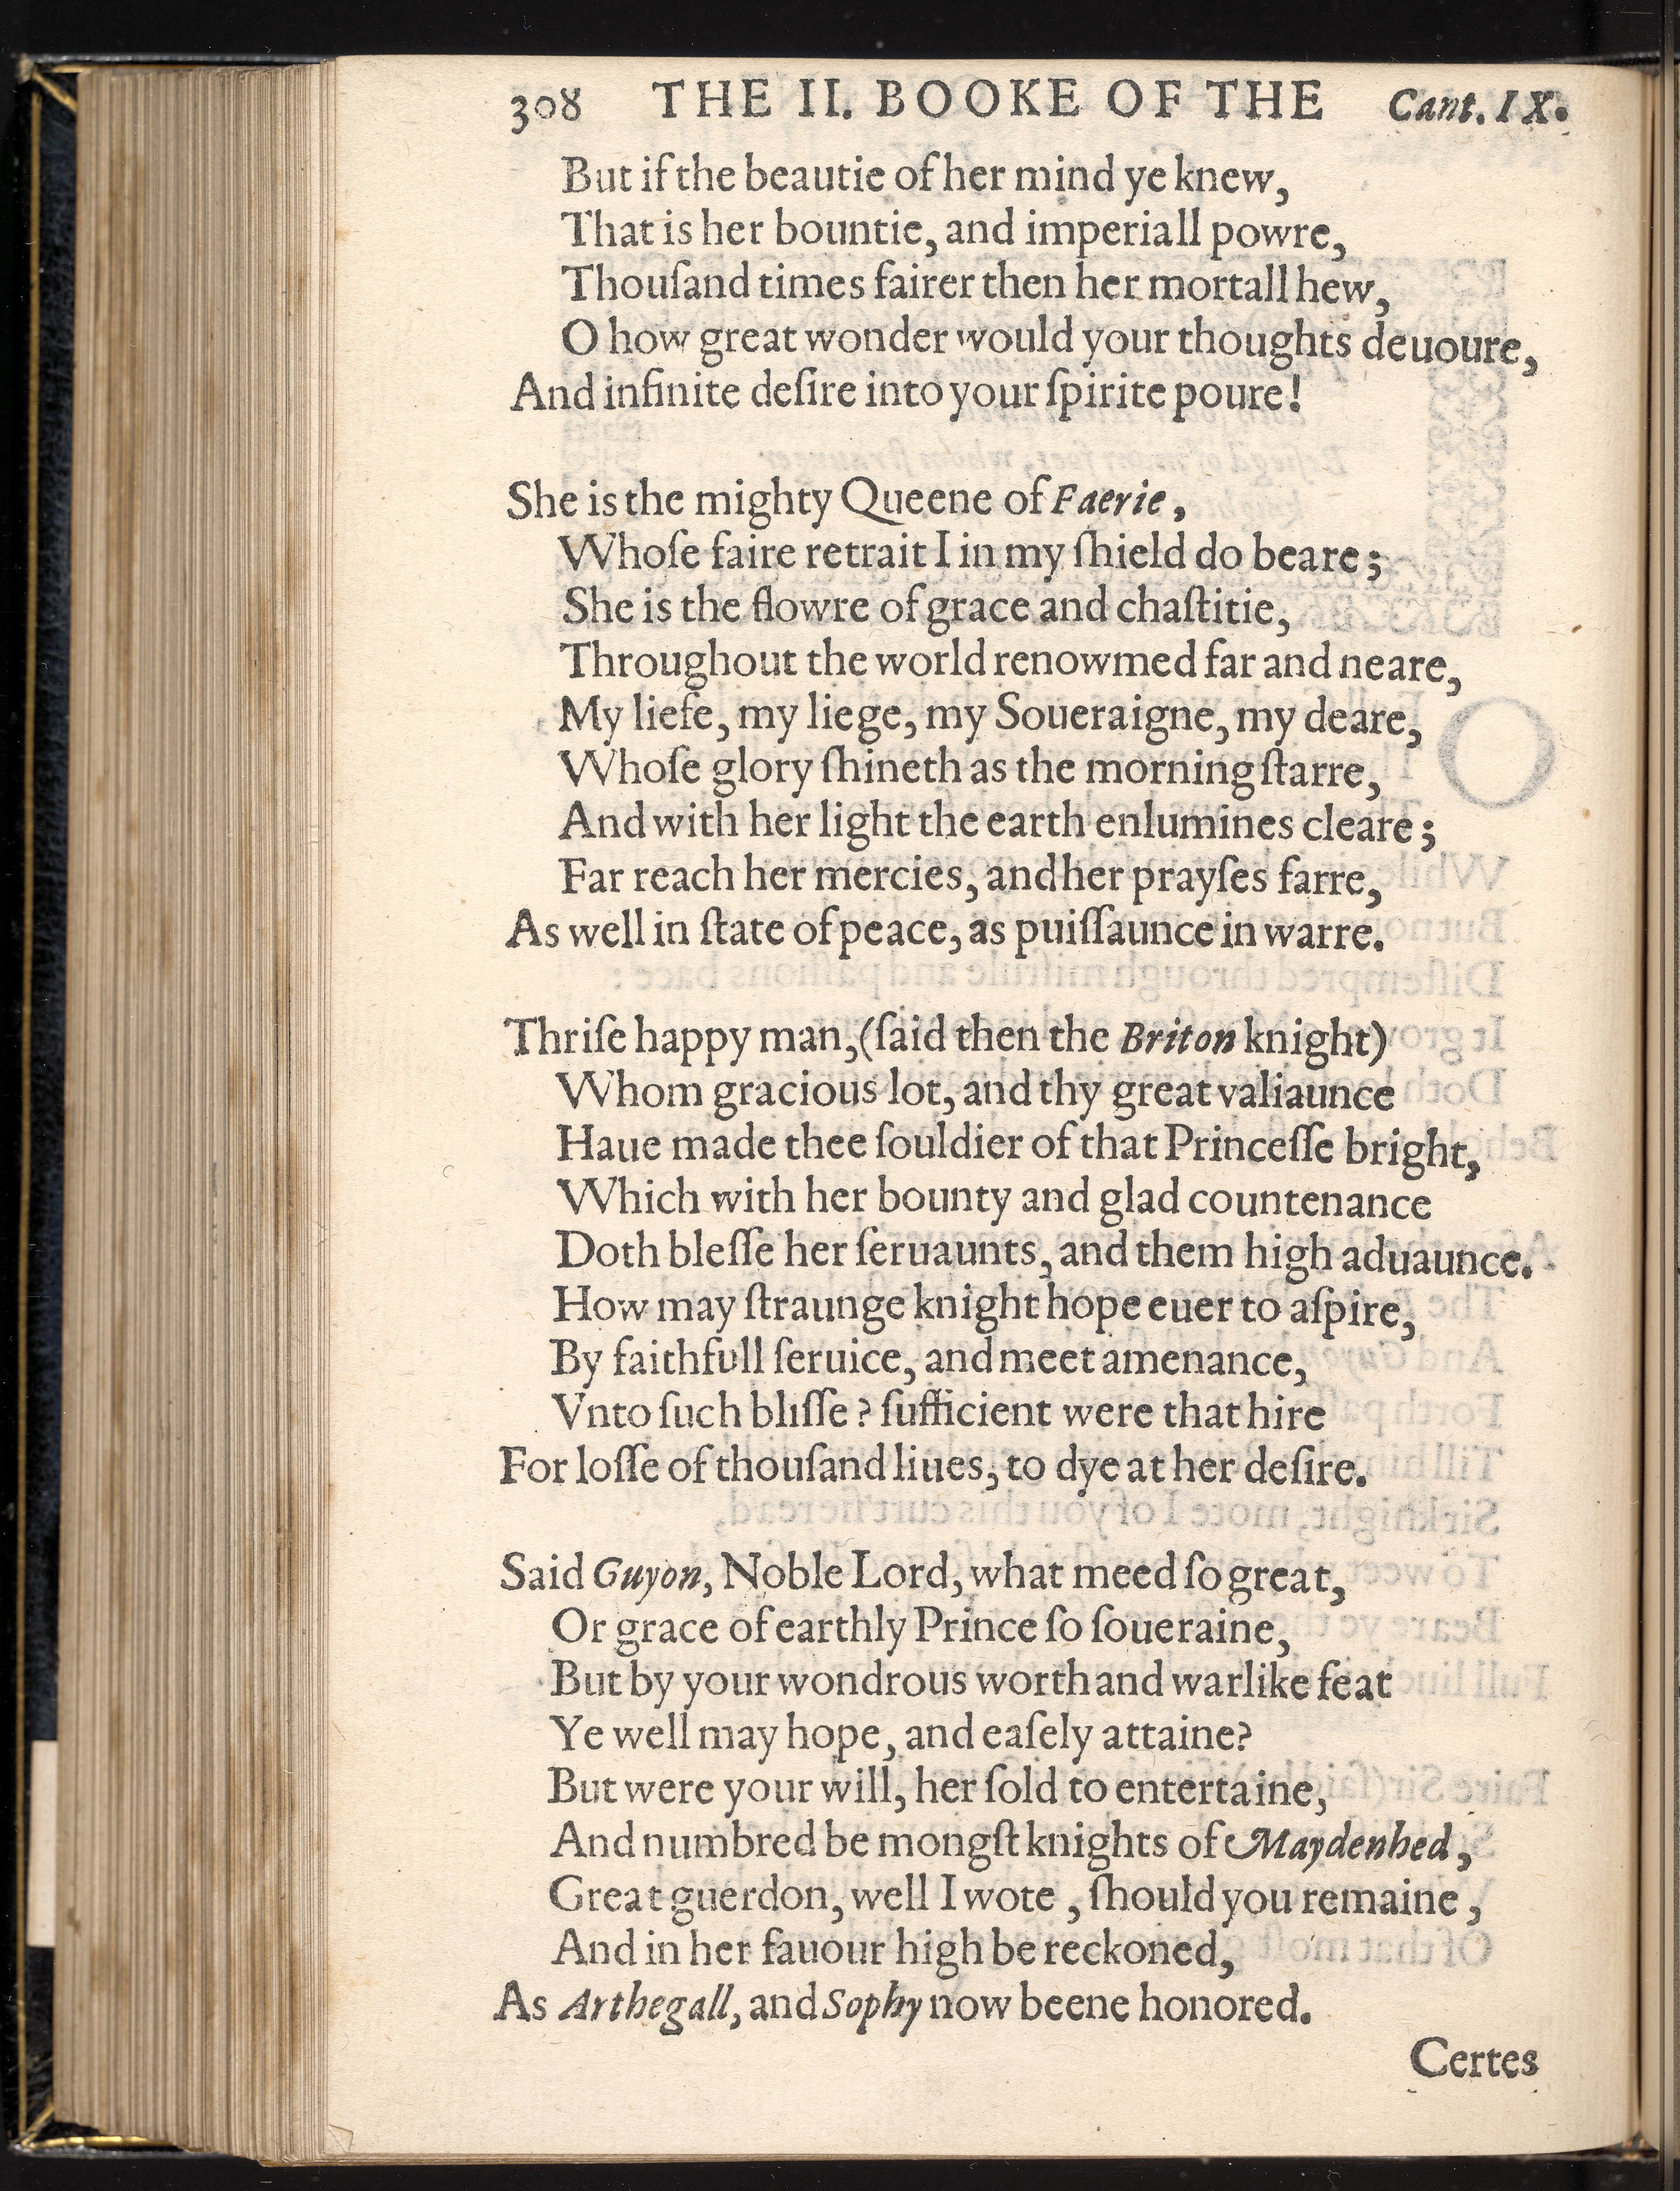 308 THE II. BOOKE OF THE Cant. IX.
But if the beautie of her mind ye knew,
That is her bountie, and imperiall powre,
Thouſand times fairer then her mortall hew,
O how great wonder would your thoughts deuoure,
And infinite deſire into your ſpirite poure!
She is the mighty Queene of Faerie,
Whoſe faire retrait I in my ſhield do beare;
She is the flowre of grace and chaſtitie,
Throughout the world renowmed far and neare,
My liefe, my liege, my Soueraigne, my deare,
Whoſe glory ſhineth as the morning ſtarre,
And with her light the earth enlumines cleare;
Far reach her mercies, and her prayſes farre,
As well in ſtate of peace, as puiſſaunce in warre.
Thriſe happy man, (ſaid then the Briton knight)
Whom gracious lot, and thy great valiaunce
Haue made thee ſouldier of that Princeſſe bright,
Which with her bounty and glad countenance
Doth bleſſe her ſeruaunts, and them high aduaunce.
How may ſtraunge knight hope euer to aſpire,
By faithfull ſeruice, and meet amenance,
Vnto ſuch bliſſe? ſufficient were that hire
For loſſe of thouſand liues, to dye at her deſire.
Said Guyon, Noble Lord, what meed ſo great,
Or grace of earthly Prince ſo ſoueraine,
But by your wondrous worth and warlike feat
Ye well may hope, and eaſely attaine?
But were your will, her ſold to entertaine,
And numbred be mongſt knights of Maydenhed,
Great guerdon, well I wote, ſhould you remaine,
And in her fauour high be reckoned,
As Arthegall, and Sophy now beene honored.
Certes